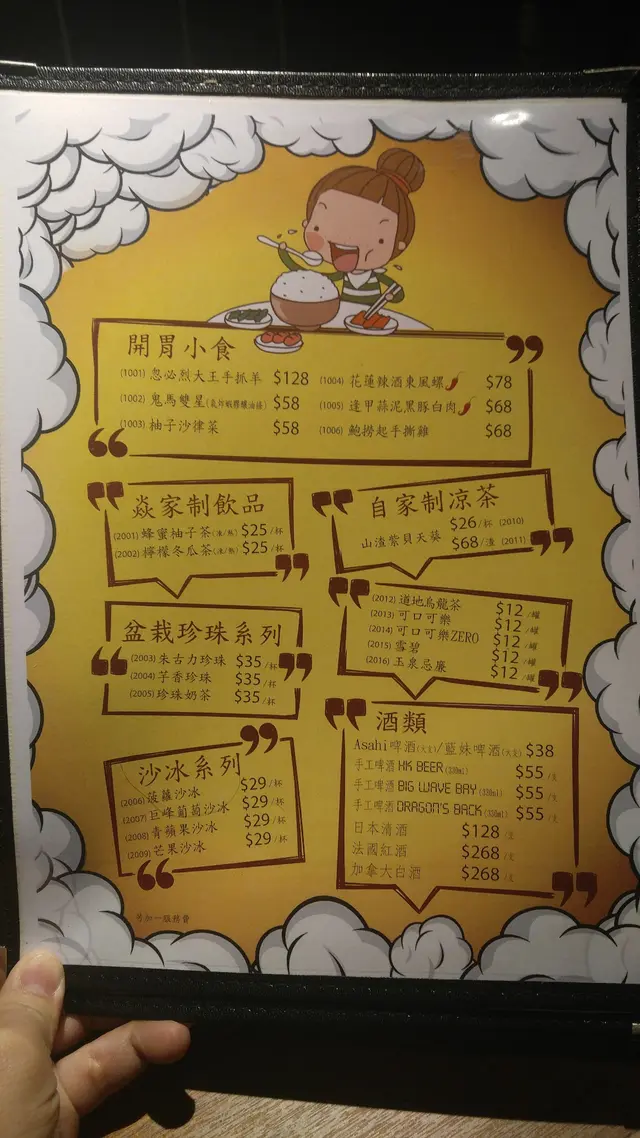 開胃小食
(1001) 忽必烈大王手抓羊 $128
(1002) 鬼馬雙星(氣炸蝦膠釀油條) $58
(1003) 柚子沙律菜 $58
(1004) 花蓮辣酒東風螺 $78
(1005) 逢甲蒜泥黑豚白肉 $68
(1006) 鮑撈起手撕雞 $68
焱家制飲品
(2001) 蜂蜜柚子茶(凍/熱) $25/杯
(2002) 檸檬冬瓜茶(凍/熱) $25/杯
自家制凉茶
$26/杯 (2010)
山渣紫貝天葵 $68/渣 (2011)
(2012) 道地烏龍茶 $12/罐
(2013) 可口可樂 $12/罐
(2014) 可口可樂ZERO $12/罐
(2015) 雪碧 $12/罐
(2016) 玉泉忌廉 $12/罐
盆栽珍珠系列
(2003) 朱古力珍珠 $35/杯
(2004) 芋香珍珠 $35/杯
(2005) 珍珠奶茶 $35/杯
沙冰系列
(2006) 菠蘿沙冰 $29/杯
(2007) 巨峰葡萄沙冰 $29/杯
(2008) 青蘋果沙冰 $29/杯
(2009) 芒果沙冰 $29/杯
酒類
Asahi啤酒(大支)/藍妹啤酒(大支) $38
手工啤酒 HK BEER(330ml) $55/支
手工啤酒 BIG WAVE BAY(330ml) $55/支
手工啤酒 DRAGON'S BACK(330ml) $55/支
日本清酒 $128/支
法國紅酒 $268/支
加拿大白酒 $268/支
另加一服務費